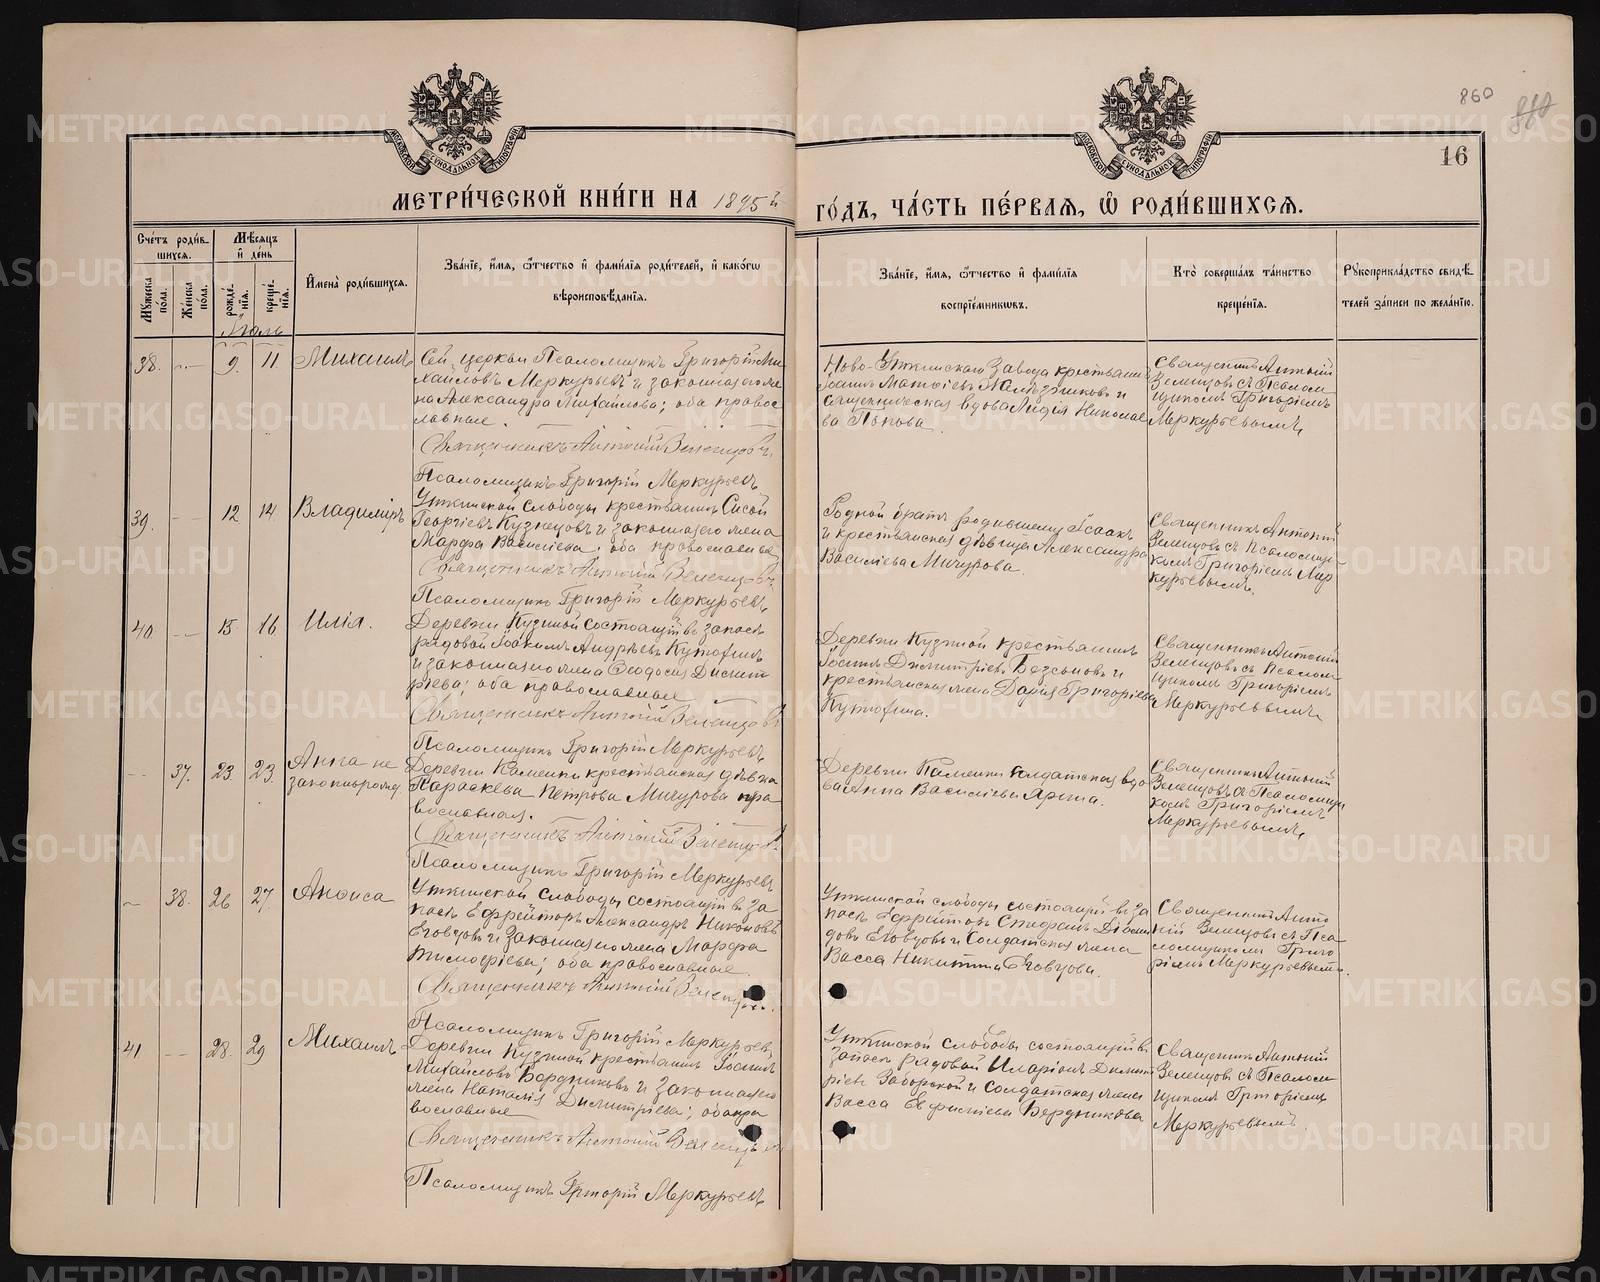 860
880
16
МОСКОВСКОЙ СѴНОДАЛЬНОЙ ТИПОГРАФІИ
МОСКОВСКОЙ СѴНОДАЛЬНОЙ ТИПОГРАФІИ
МЕТРИ́ЧЕСКОЙ КНИ́ГИ НА 1895й
ГО́ДЪ, ЧА́СТЬ ПЕ́РВАЯ, Ѽ РОДИ́ВШИХСЯ.
Сче́тъ роди́в-
шихся.
Мꙋ́жеска
по́ла.
Же́нска
по́ла.
Мѣ́сяцъ
и҆ де́нь
рожде́-
нїя.
креще́-
нїя.
Июль
И҆мена̀ роди́вшихся.
Зва́нїе, и҆́мя, ѻ҆́тчество и҆ фами́лїя роди́телей, и҆ како́гѡ
вѣроисповѣ́данїя.
Зва́нїе, и҆́мя, ѻ҆́тчество и҆ фами́лїя
воспрїе́мникѡвъ.
Кто̀ соверша́лъ та́инство
креще́нїя.
Рꙋкоприкла́дство свидѣ́-
телей за́писи по жела́нїю.
38. — 9. 11 Михаилъ
Сей церкви Псаломщикъ Григорій Ми
хайловъ Меркурьевъ и законная его же
на Александра Михайлова; оба правос
лавные.
Священникъ Антоній Зеленцовъ
Псаломщикъ Григорій Меркурьевъ
Ново-Уткинскаго Завода крестьянинъ
Іоаннъ Матѳіевъ и
священническая вдова Лидія Николае
ва Попова
Священникъ Антоній
Зеленцовъ съ Псалом
щикомъ Григоріемъ
Меркурьевымъ
39. — 12 14 Владимiръ
Уткинской Слободы крестьянинъ Сисой
Георгіевъ Кузнецовъ и законная его жена
Марфа Василіева; оба православные
Священникъ Антоній Зеленцовъ
Псаломщикъ Григорій Меркурьевъ
Родной братъ родившему Исаакъ
и крестьянская дѣвица Александра
Василіева Мичурова.
Священникъ Антоній
Зеленцовъ съ Псаломщи
комъ Григоріемъ Мер
курьевымъ.
40 — 15 16 Илія.
Деревни Кузиной состоящій въ запасѣ
рядовой Іоакимъ Андреевъ Кутюхинъ
и законная его жена Ѳеодосія Димит
ріева; оба православные
Священникъ Антоній Зеленцовъ
Псаломщикъ Григорій Меркурьевъ
Деревни Кузиной крестьянинъ
Іоаннъ Димитріевъ Безсоновъ и
крестьянская жена Дарія Григоріева
Кутюхина.
Священникъ Антоній
Зеленцовъ съ Псалом
щикомъ Григоріемъ
Меркурьевымъ
— 37. 23. 23. Анна не
законнорожд.
Деревни Каменки крестьянская дѣвка
Параскева Петрова Мичурова пра
вославная.
Священникъ Антоній Зеленцовъ
Псаломщикъ Григорій Меркурьевъ
Деревни Каменки солдатская вдо
ва Анна Василіева Ярина.
Священникъ Антоній
Зеленцовъ съ Псаломщи
комъ Григоріемъ
Меркурьевымъ
— 38. 26 27. Анѳиса
Уткинской слободы состоящій въ за
пасѣ Ефрейторъ Александръ Никоновъ
Еговцовъ и законная его жена Марфа
Тимоѳіева; оба православные.
Священникъ Антоній Зеленцовъ
Псаломщикъ Григорій Меркурьевъ
Уткинской слободы состоящій въ за
пасѣ Ефрейторъ Стефанъ
довъ Еговцовъ и Солдатская жена
Васса Никитина Еговцова.
Священникъ Анто
ній Зеленцовъ съ Пса
ломщикомъ Григо
ріемъ Меркурьевымъ.
41 — 28. 29 Михаилъ
Деревни Кузиной крестьянинъ Іоаннъ
Михайловъ Бердниковъ и законная его
жена Наталія Димитріева; оба пра
вославные
Священникъ Антоній Зеленцовъ
Псаломщикъ Григорій Меркурьевъ
Уткинской Слободы состоящій въ
запасѣ рядовой Иларіонъ Димит
ріевъ Заборской и Солдатская жена
Васса Евфиміева Бердникова
Священникъ Антоній
Зеленцовъ съ Псалом
щикомъ Григоріемъ
Меркурьевымъ.
METRIKI.GASO-URAL.RU